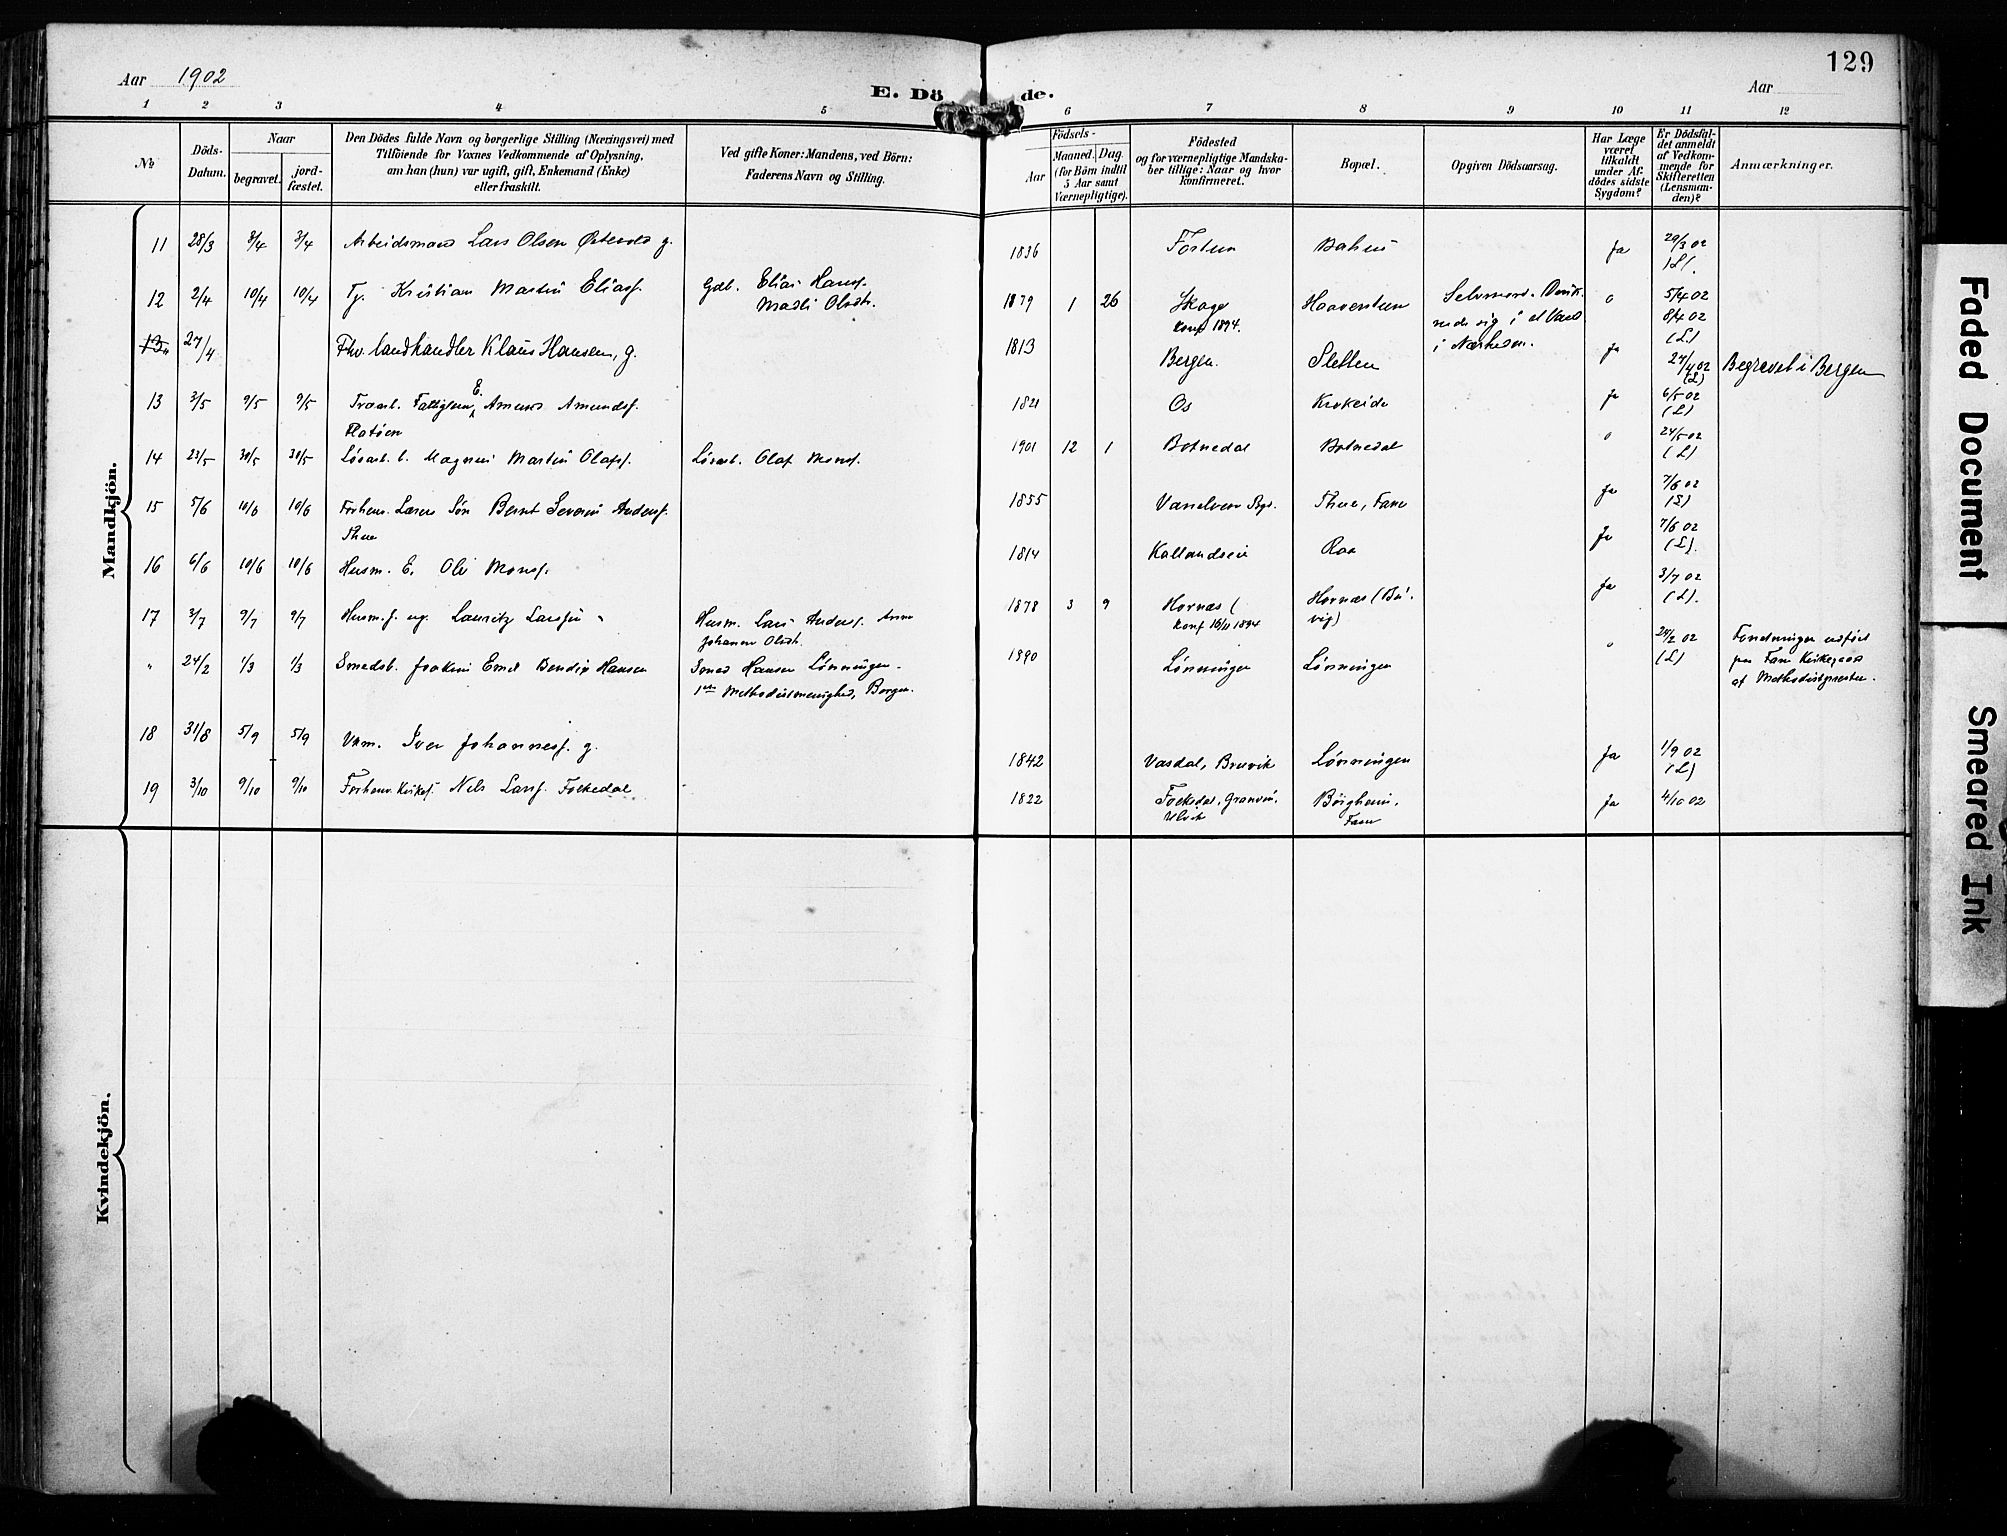 129
Aar 1902
E. Dö de.
Aar
1 2 3 4 5 6 7 8 9 10 11 12
№
Döds-Datum.
Naar
begravet.
jord-fæstet.
Den Dödes fulde Navn og borgerlige Stilling (Næringsvei) med
Tilföiende for Voxnes Vedkommende af Oplysning,
om han (hun) var ugift, gift, Enkemand (Enke)
eller fraskilt.
Ved gifte Koner: Mandens, ved Börn:
Faderens Navn og Stilling.
Födsels-
Aar
Maaned.
Dag.
(for Börn indtil
5 Aar samt
Værnepligtige).
Födested
og for værnepligtige Mandska-
ber tillige: Naar og hvor
konfirmeret.
Bopæl.
Opgiven Dödsaarsag.
Har Læge
været
tilkaldt
under Af-
dödes sidste
Sygdom?
Er Dödsfal-
det anmeldt
af Vedkom-
mende for
Skifteretten
(Lensman-
den)?
Anmærkninger.
Mandkjön.
11 28/3 3/4 3/4 Arbeidsmand Lars Olsen g. 1836 Ja 29/3 02
(L).
12 2/4 10/4 10/4 Kristian Martin Eliass. Gdb. Elias Hanss. 1879 1 26 Skage Selvmord. 0 5/4 02
konf 1894. sig i et Vand 8/4 02
(L)
13 27/4 Fhv. landhandler Klaus Hansen, g. 1813 Bergen. Sletten Ja 27/4 02
(L)
Begravet i Bergen
13 3/5 9/5 9/5 E. Amund Amunds. 1821 Os Krokeide Ja 6/5 02
(L)
Flatöen
14 23/5 30/5 30/5 Magnus Martin Olafs. Olaf Mons. 1901 12 1 Botnedal Botnedal 0 24/5 02
(L)
15 5/6 10/6 10/6 Forhenv. Lærer Bernt Severin Anders. 1855 Fane Ja 7/6 02
(L)
16 6/6 10/6 10/6 Husm. E. Ole Mons. 1814 Kallandseie Raa Ja 7/6 02
(L).
17 3/7 9/7 9/7 Husm.s. ug. Lauritz Larsen Husm. Lars Anders. Anna 1878 3 9 Hornæs ( Hornæs Ja 3/7 02
(L).
Johanne Olsdt. konf 1894
" 24/2 1/3 1/3 Smedsb. Joakim Emil Bendix Hansen Smed Hansen Lönningen. 1890 Lönningen Lönningen 0 24/2 02
(L)
1ste Methodistmenighed, Bergen.
udfört
paa Fane Kirkegaard
af Methodistpræsten.
18 31/8 5/9 5/9 Iver Johanness. g. 1842 Vasdal, Bruvik Lönningen Ja 1/9 02
(L)
19 3/10 9/10 9/10 Forhenv. Nils Larss. Folkedal 1822 Folkedal, Granvin, Ja 4/10 02
Ulvik Fane
Kvindekjön.
Faded Document
Smeared Ink